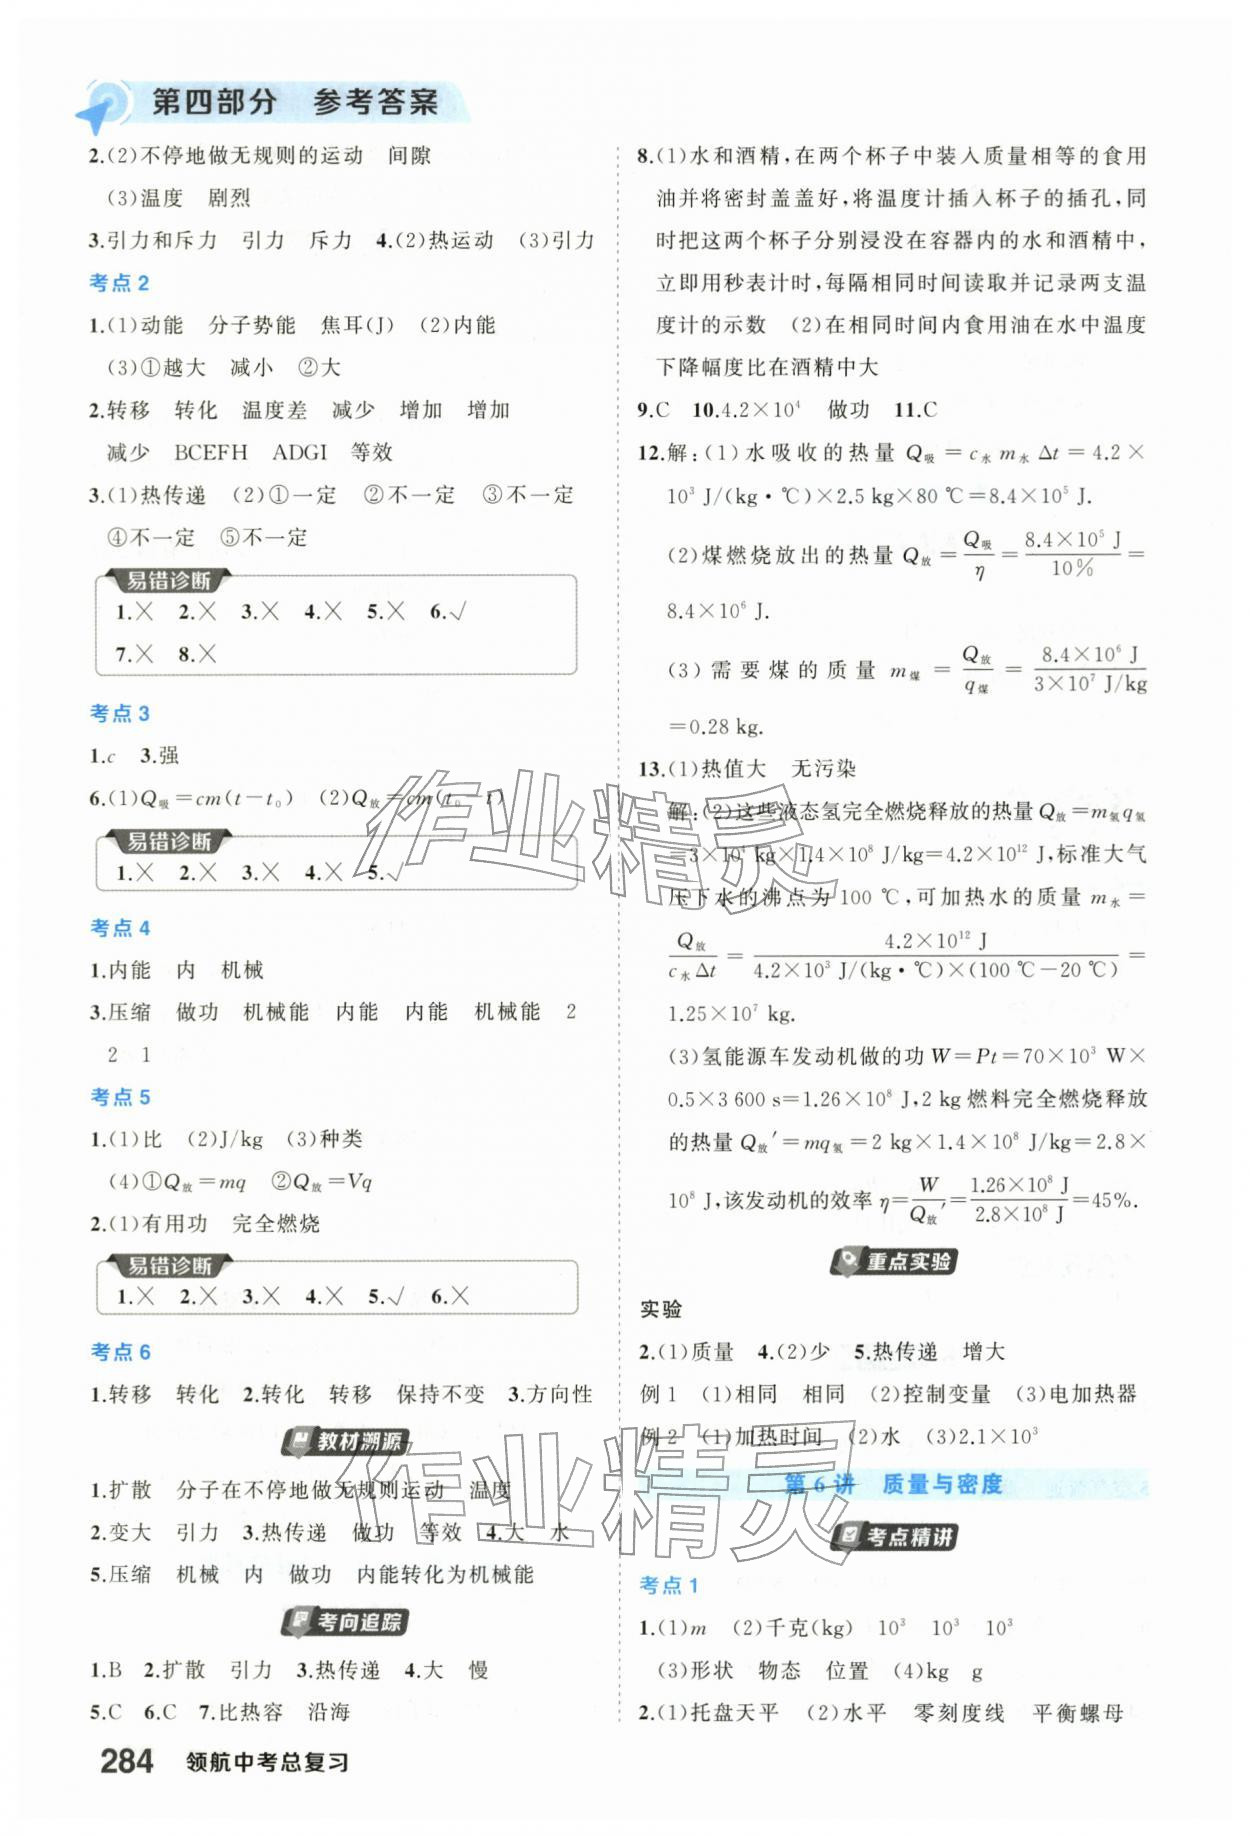 第四部分 参考答案
2.(2)不停地做无规则的运动 间隙
(3)温度 剧烈
3.引力和斥力 引力 斥力 4.(2)热运动 (3)引力
考点2
1.(1)动能 分子势能 焦耳(J) (2)内能
(3)①越大 减小 ②大
2.转移 转化 温度差 减少 增加 增加
减少 BCEFH ADGI 等效
3.(1)热传递 (2)①一定 ②不一定 ③不一定
④不一定 ⑤不一定
易错诊断
1.× 2.× 3.× 4.× 5.× 6.√
7.× 8.×
考点3
1.c 3.强
6.(1)Q吸=cm(t-t₀) (2)Q放=cm(t₀-t)
易错诊断
1.× 2.× 3.× 4.× 5.√
考点4
1.内能 内 机械
3.压缩 做功 机械能 内能 内能 机械能 2
2 1
考点5
1.(1)比 (2)J/kg (3)种类
(4)①Q放=mq ②Q放=Vq
2.(1)有用功 完全燃烧
易错诊断
1.× 2.× 3.× 4.× 5.√ 6.×
考点6
1.转移 转化 2.转化 转移 保持不变 3.方向性
教材溯源
1.扩散 分子在不停地做无规则运动 温度
2.变大 引力 3.热传递 做功 等效 4.大 水
5.压缩 机械 内 做功 内能转化为机械能
考向追踪
1.B 2.扩散 引力 3.热传递 4.大 慢
5.C 6.C 7.比热容 沿海
8.(1)水和酒精,在两个杯子中装入质量相等的食用
油并将密封盖盖好,将温度计插入杯子的插孔,同
时把这两个杯子分别浸没在容器内的水和酒精中,
立即用秒表计时,每隔相同时间读取并记录两支温
度计的示数 (2)在相同时间内食用油在水中温度
下降幅度比在酒精中大
9.C 10.4.2×10⁴ 做功 11.C
12.解:(1)水吸收的热量 Q吸=c水m水Δt=4.2×
10³ J/(kg·℃)×2.5 kg×80 ℃=8.4×10⁵ J.
(2)煤燃烧放出的热量 Q放=Q吸/η=8.4×10⁵ J/10%=
8.4×10⁶ J.
(3)需要煤的质量 m煤=Q放/q煤=8.4×10⁶ J/3×10⁷ J/kg
=0.28 kg.
13.(1)热值大 无污染
解:(2)这些液态氢完全燃烧释放的热量 Q放=m氢q氢
=3×10⁴ kg×1.4×10⁸ J/kg=4.2×10¹² J,标准大气
压下水的沸点为 100 ℃,可加热水的质量 m水=
Q放/c水Δt=4.2×10¹² J/4.2×10³ J/(kg·℃)×(100 ℃-20 ℃)=
1.25×10⁷ kg.
(3)氢能源车发动机做的功 W=Pt=70×10³ W×
0.5×3 600 s=1.26×10⁸ J,2 kg 燃料完全燃烧释放
的热量 Q放′=mq氢=2 kg×1.4×10⁸ J/kg=2.8×
10⁸ J,该发动机的效率 η=W/Q放′=1.26×10⁸ J/2.8×10⁸ J=45%.
重点实验
实验
2.(1)质量 4.(2)少 5.热传递 增大
例1 (1)相同 相同 (2)控制变量 (3)电加热器
例2 (1)加热时间 (2)水 (3)2.1×10³
第6讲 质量与密度
考点精讲
考点1
1.(1)m (2)千克(kg) 10³ 10³ 10³
(3)形状 物态 位置 (4)kg g
2.(1)托盘天平 (2)水平 零刻度线 平衡螺母
284 领航中考总复习
作业精灵
作业精灵